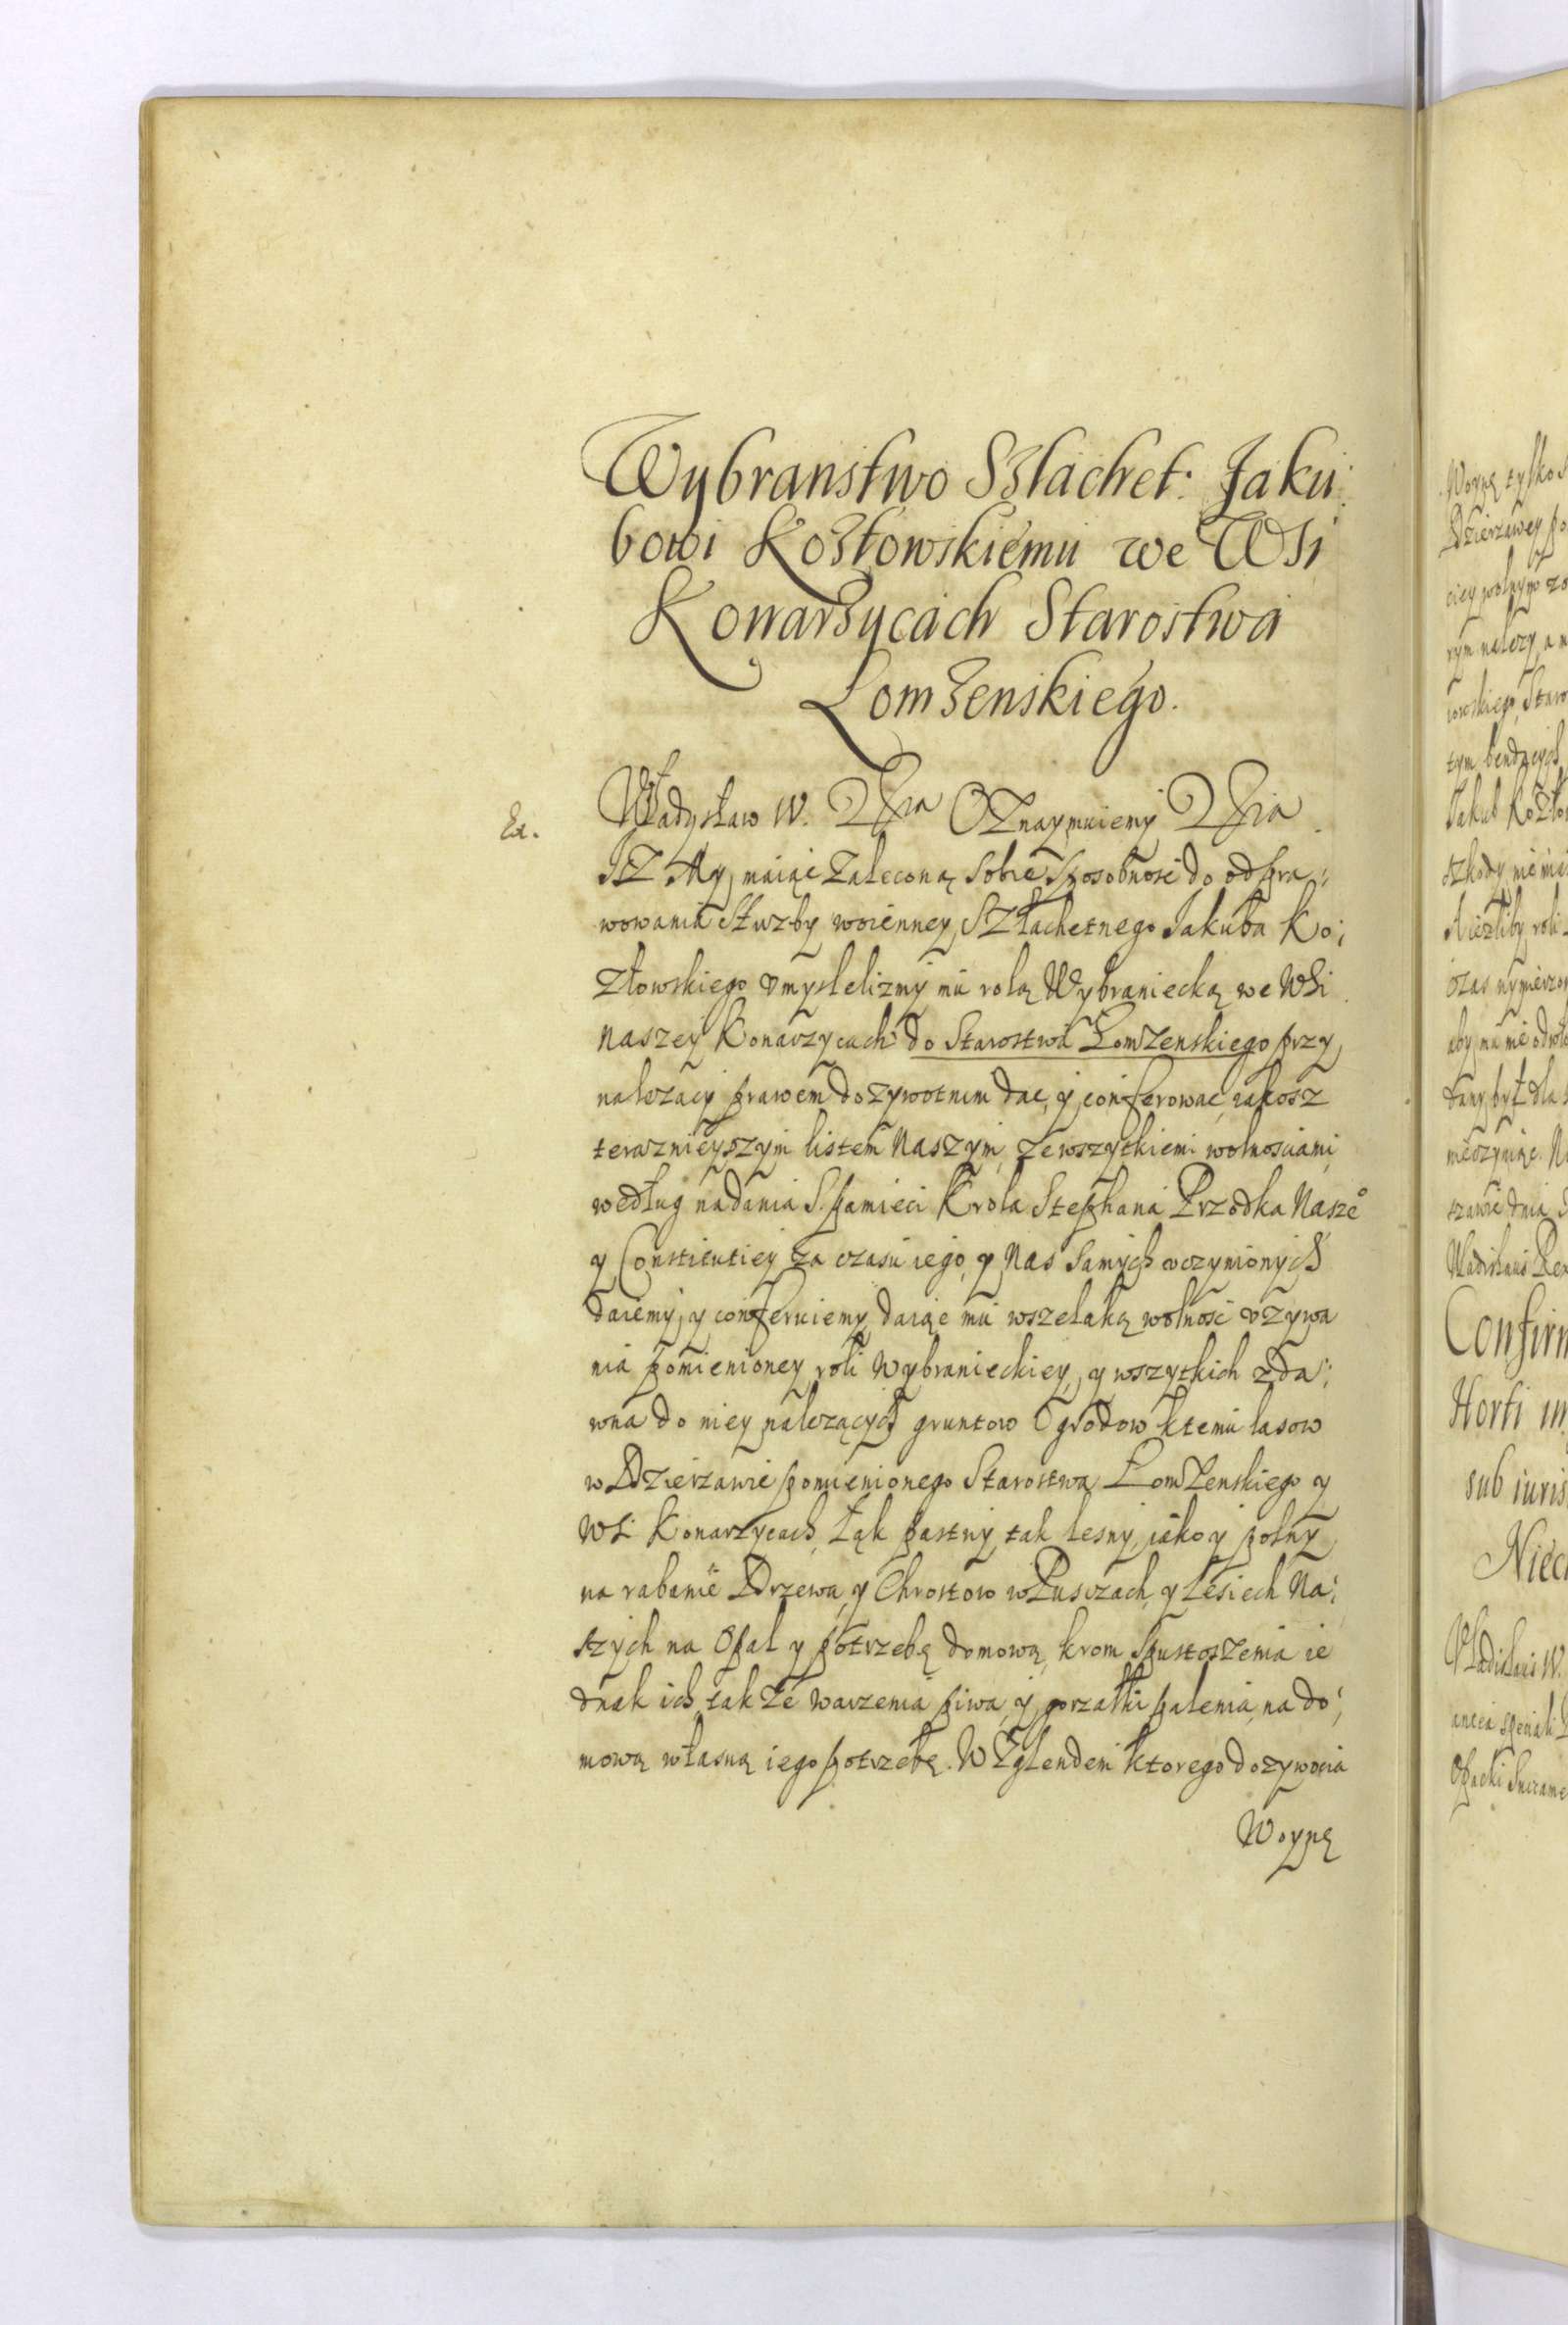 Wybranstwo Szlachet: Jaku:
bowi Kozłowskiemu we WSi
Konarzycach Starostwa
Lomzenskiego.
Ex.
Władysław IV. Oznaymuiemy
JZ My maiąc Zaleconą Sobie sposobnosć do odpra:
wowania Służby woienney, SZlachetnego Jakuba Ko:
złowskiego vmyslelizmy mu rolą Wybraniecką we WSi
naszey Konarzycach do Starostwa Łomzenskiego przy
nalezący prawem dozywotnim dac, y conferowac, iakosz
teraznieyszym listem Naszym, ze wszytkiemi wolnosciami
według nadania S. pamieci Krola Stephana Przodka Nasze°
y Constitutiey za czasu iego, y Nas Samych vczynionych
daiemy, y conferuiemy, daiąc mu wszelaką wolnosć vzywa
nia pomienioney roli Wybranieckiey, y wszytkich zda:
wna do niey nalezących gruntow Ogrodow ktemu lasow
w Dzierzawie pomienionego Starostwa Łomzenskiego y
WSi Konarzycach, Łąk pastwy, tak lesny, iako y polny
na rabanie Drzewa, y Chrostow w Pusczach, y Lesiech Na:
szych na Opał y potrzebę domową, krom Spustoszenia ie
dnak ich, tak ze warzenia piwa, y gorzałki palenia, na do:
mową własną iego potrzebę. WZglendem ktorego dozywocia
Woynę
Woynę tylko
Dzierzawey po
rym nalezy, a
owskiego, Staro
tym bendących
Jakub Kozło
szkody nie
Jiezliby roli
czas
aby mu nie
dany był dla
szawie dnia
Wladislaus Rex
Confirm
Horti in
sub iuris
Niec
Wladislaus IV.